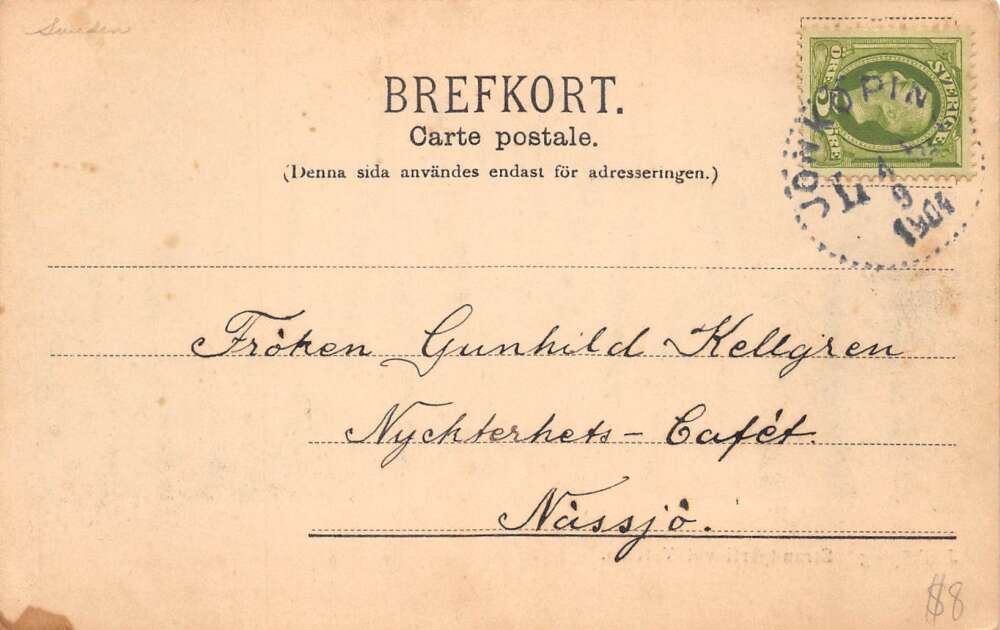 Sweden
BREFKORT.
Carte postale.
(Denna sida användes endast för adresseringen.)
SVERIGE
5
ÖRE
ÖRE
JÖNKÖPING
4 9
1904
Fröken Gunhild Kellgren
Nyckterhets-Cafét.
Nässjö.
$8